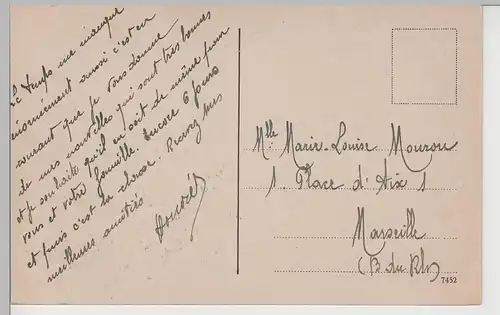 Le temps me manque
énormément aussi c'est en
courant que je vous donne
de mes nouvelles qui sont très bonnes
et je souhaite qu'il en soit de même pour
vous et votre famille. Encore 6 jours
et puis c'est la chasse. Recevez mes
meilleures amitiés
Mlle Marie-Louise Mourou
1. Place d'Aix 1
Marseille
(B du Rh)
7452